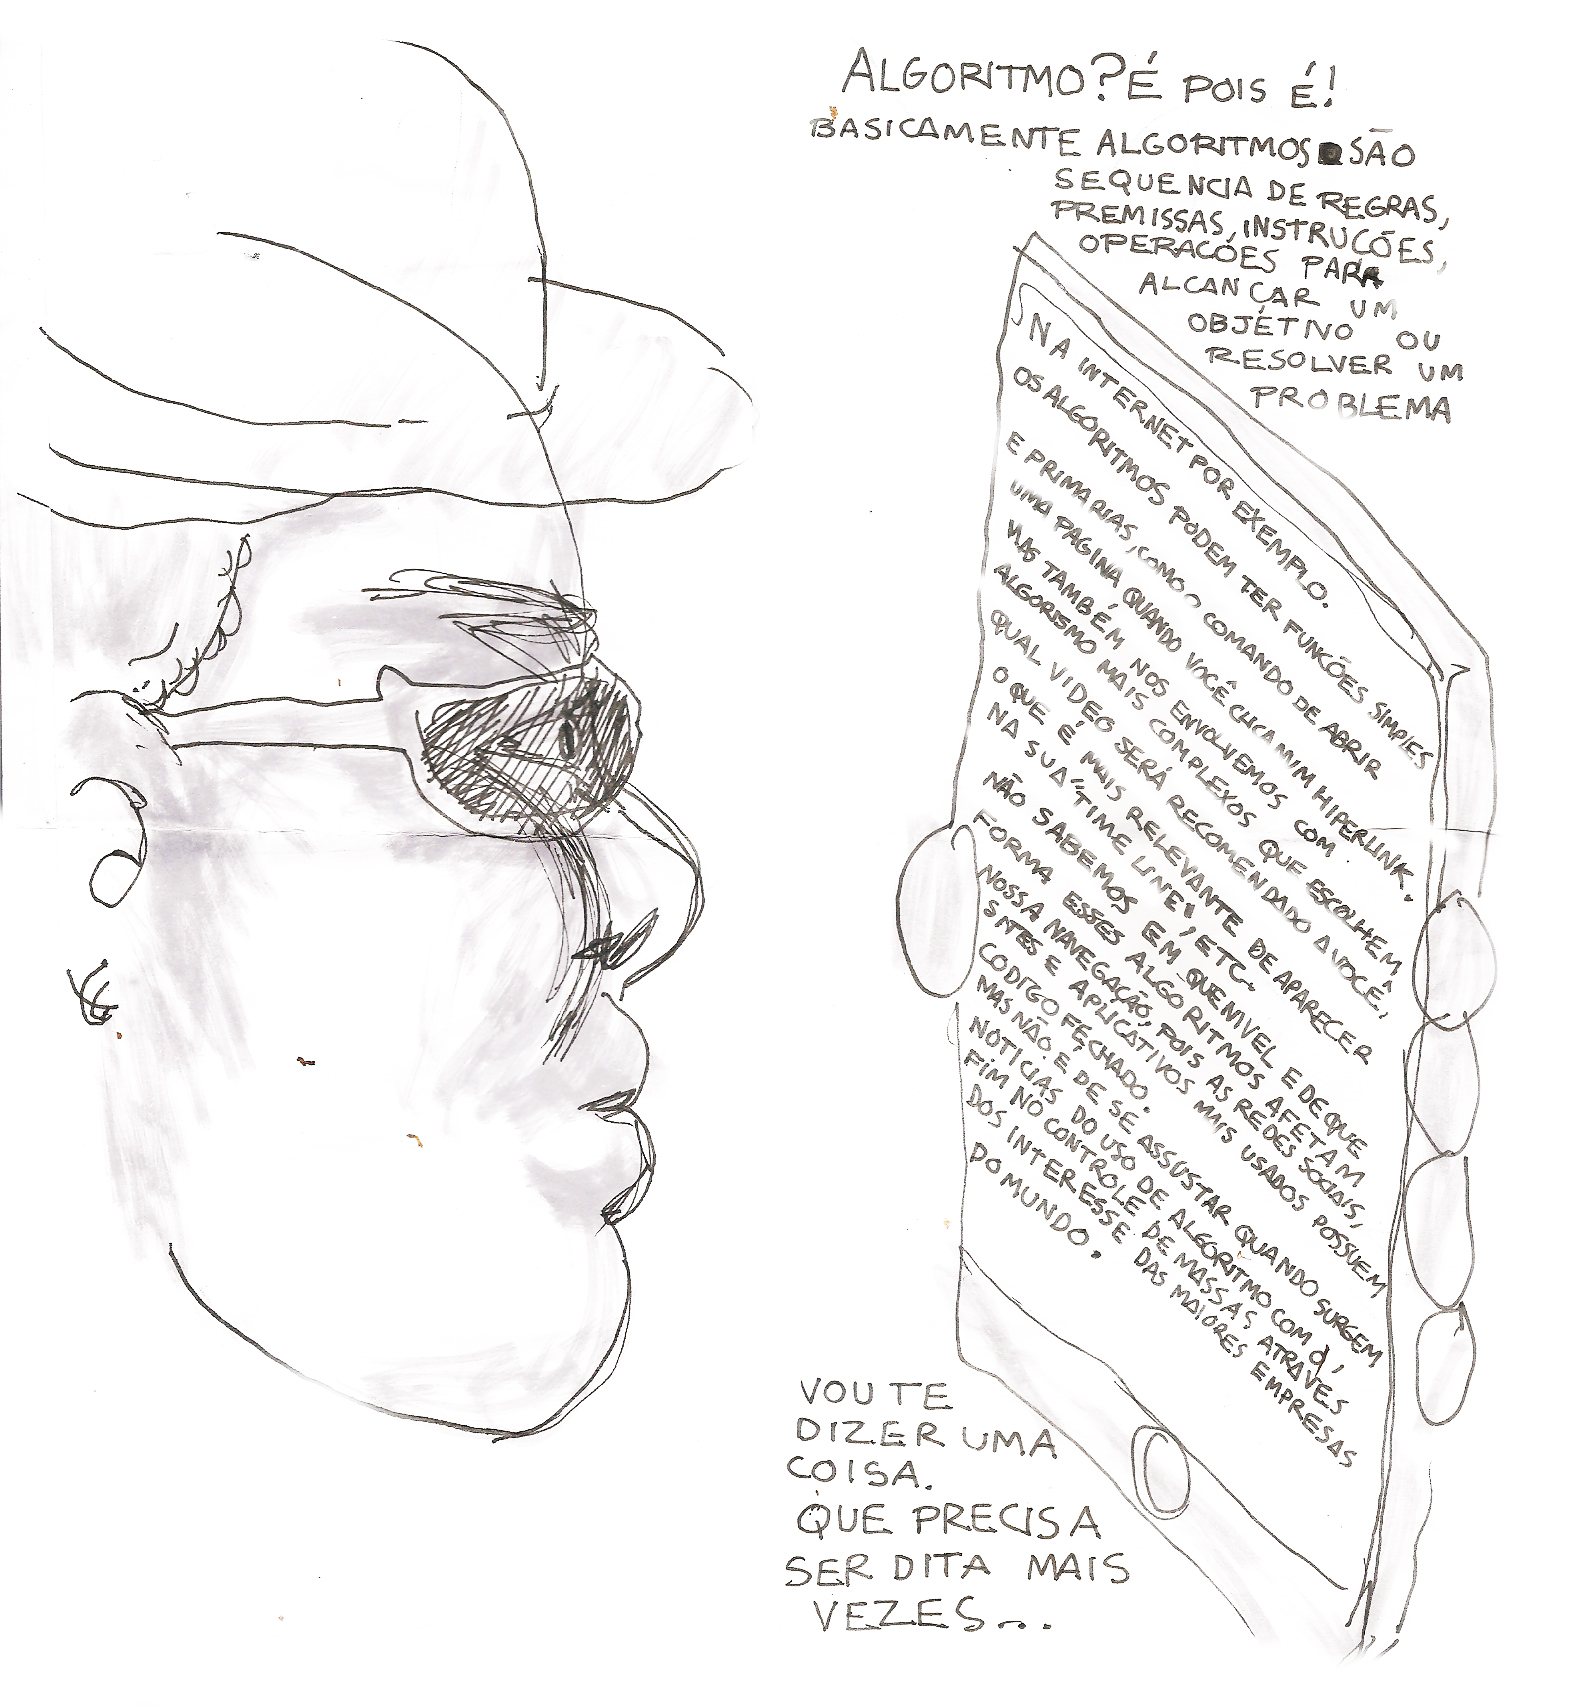 ALGORITMO? É POIS É!
BASICAMENTE ALGORITMOS SÃO
SEQUENCIA DE REGRAS,
PREMISSAS, INSTRUÇÕES,
OPERACÓES PARA
ALCANÇAR UM
OBJETIVO OU
RESOLVER UM
PROBLEMA
NA INTERNET POR EXEMPLO.
OS ALGORITMOS PODEM TER FUNCÕES SIMPLES
E PRIMARIAS, COMO O COMANDO DE ABRIR
UMA PAGINA QUANDO VOCÊ CLICA MIM HIPERLINK.
MAS TAMBÉM NOS ENVOLVEMOS COM
ALGORISMO MAIS COMPLEXOS QUE ESCOLHEM
QUAL VIDEO SERÁ RECOMENDADO A VOCÊ,
O QUE É MAIS RELEVANTE DE APARECER
NA SUA "TIME LINE", ETC.
NÃO SABEMOS EM QUE NIVEL E DE QUE
FORMA ESSES ALGORITMOS AFETAM
NOSSA NAVEGAÇÃO, POIS AS REDES SOCIAIS,
SITES E APLICATIVOS MAIS USADOS POSSUEM
CODIGO FECHADO.
MAS NÃO É DE SE ASSUSTAR QUANDO SURGEM
NOTICIAS DO USO DE ALGORITMO COM O,
FIM NO CONTROLE DE MASSAS ATRAVES
DOS INTERESSE DAS MAIORES EMPRESAS
DO MUNDO.
VOU TE
DIZER UMA
COISA.
QUE PRECISA
SER DITA MAIS
VEZES...